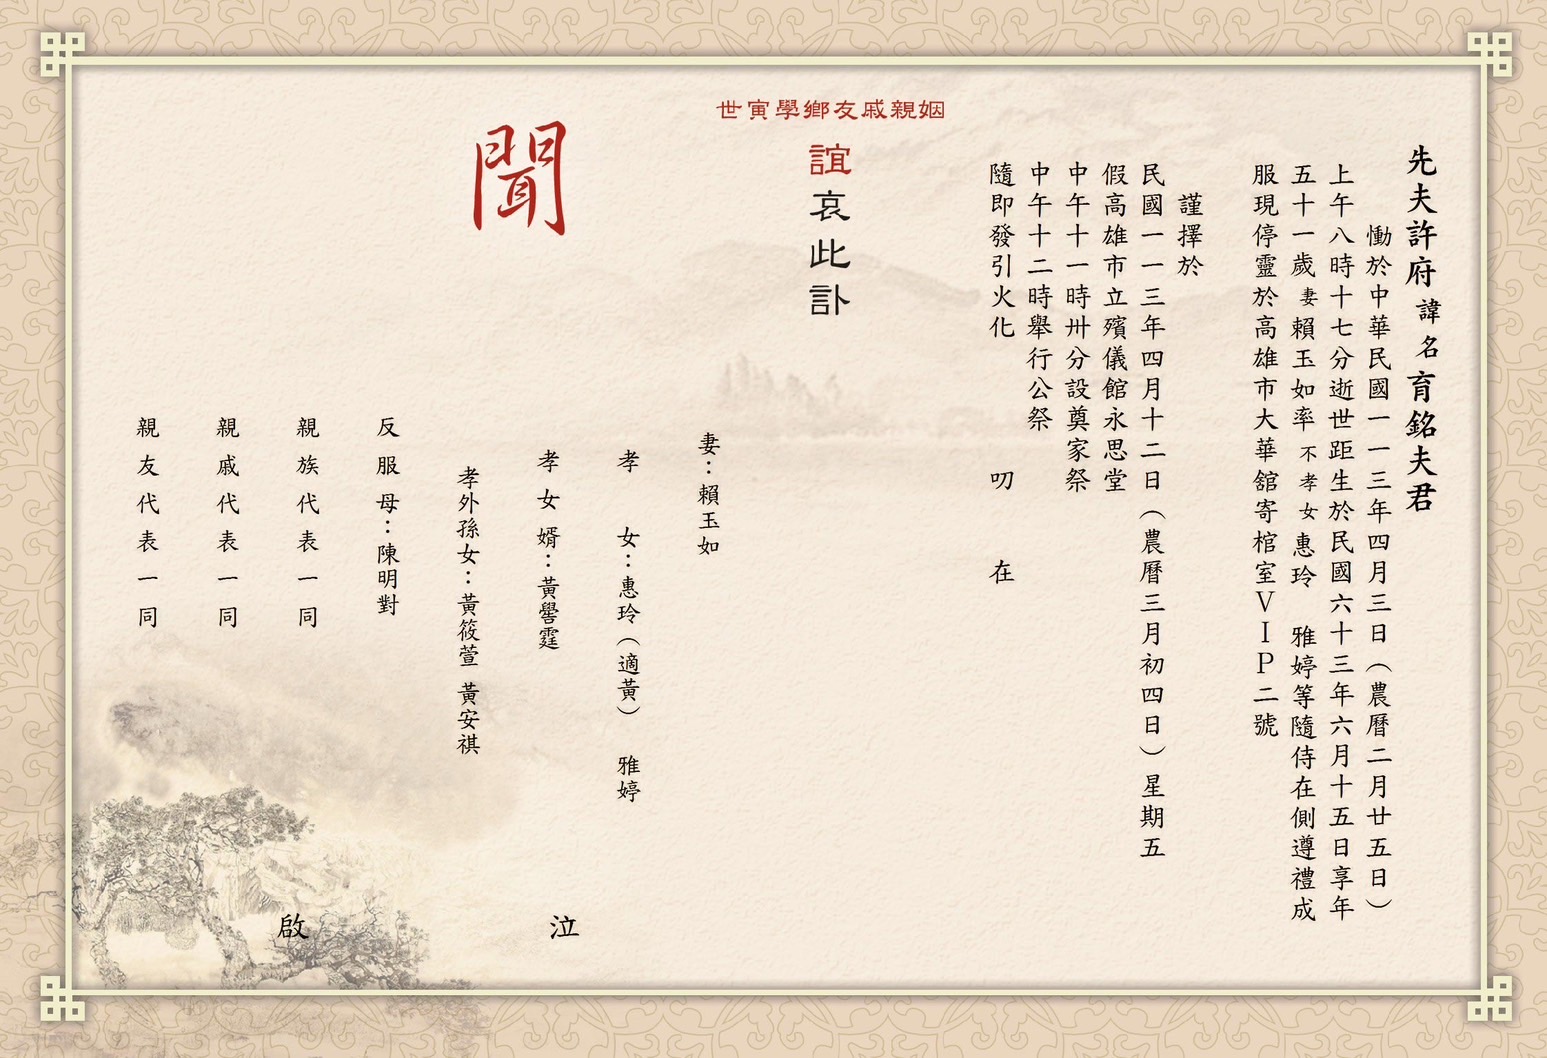 先夫許府諱名育銘夫君
慟於中華民國一一三年四月三日（農曆二月廿五日）
上午八時十七分逝世距生於民國六十三年六月十五日享年
五十一歲妻賴玉如率不孝女惠玲　雅婷等隨侍在側遵禮成
服現停靈於高雄市大華舘寄棺室ＶＩＰ二號
謹擇於
民國一一三年四月十二日（農曆三月初四日）星期五
假高雄市立殯儀館永思堂
中午十一時卅分設奠家祭
中午十二時舉行公祭
隨即發引火化　叨　在
姻親戚友鄉學寅世
誼哀此訃
聞
妻：賴玉如
孝　女：惠玲（適黃）　雅婷
孝女婿：黃礐霆
孝外孫女：黃筱萱 黃安祺
反服母：陳明對
親族代表一同
親戚代表一同
親友代表一同
泣　啟